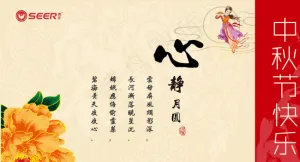 SEER
心
静月圆
云母屏风烛影深
长河渐落晓星沉
嫦娥应悔偷灵药
碧海青天夜夜心
中秋节快乐